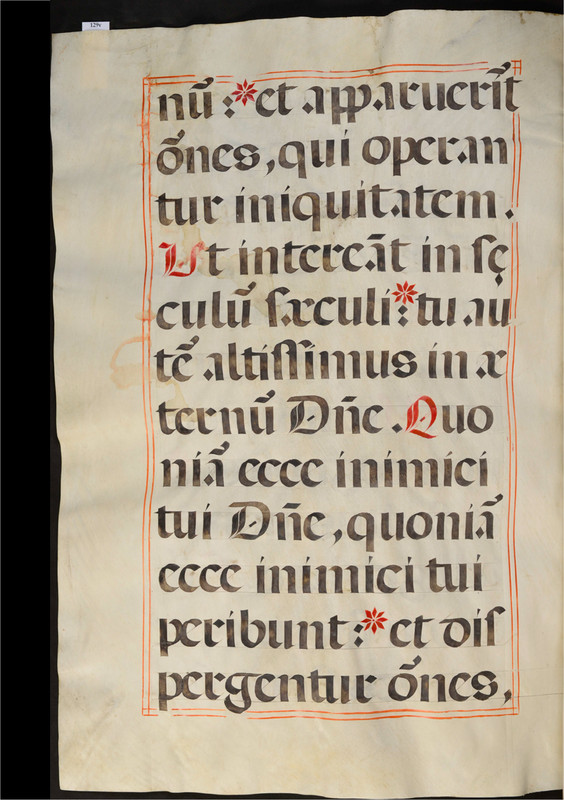 129v
nū:* et apparuerīt
ōnes, qui operan
tur iniquitatem.
Ut intereāt in sę
culū sæculi:* tu au
tē altissimus in æ
ternū Dn̄e. Quo
niā ecce inimici
tui Dn̄e, quoniā
ecce inimici tui
peribunt:* et dis
pergentur ōnes,